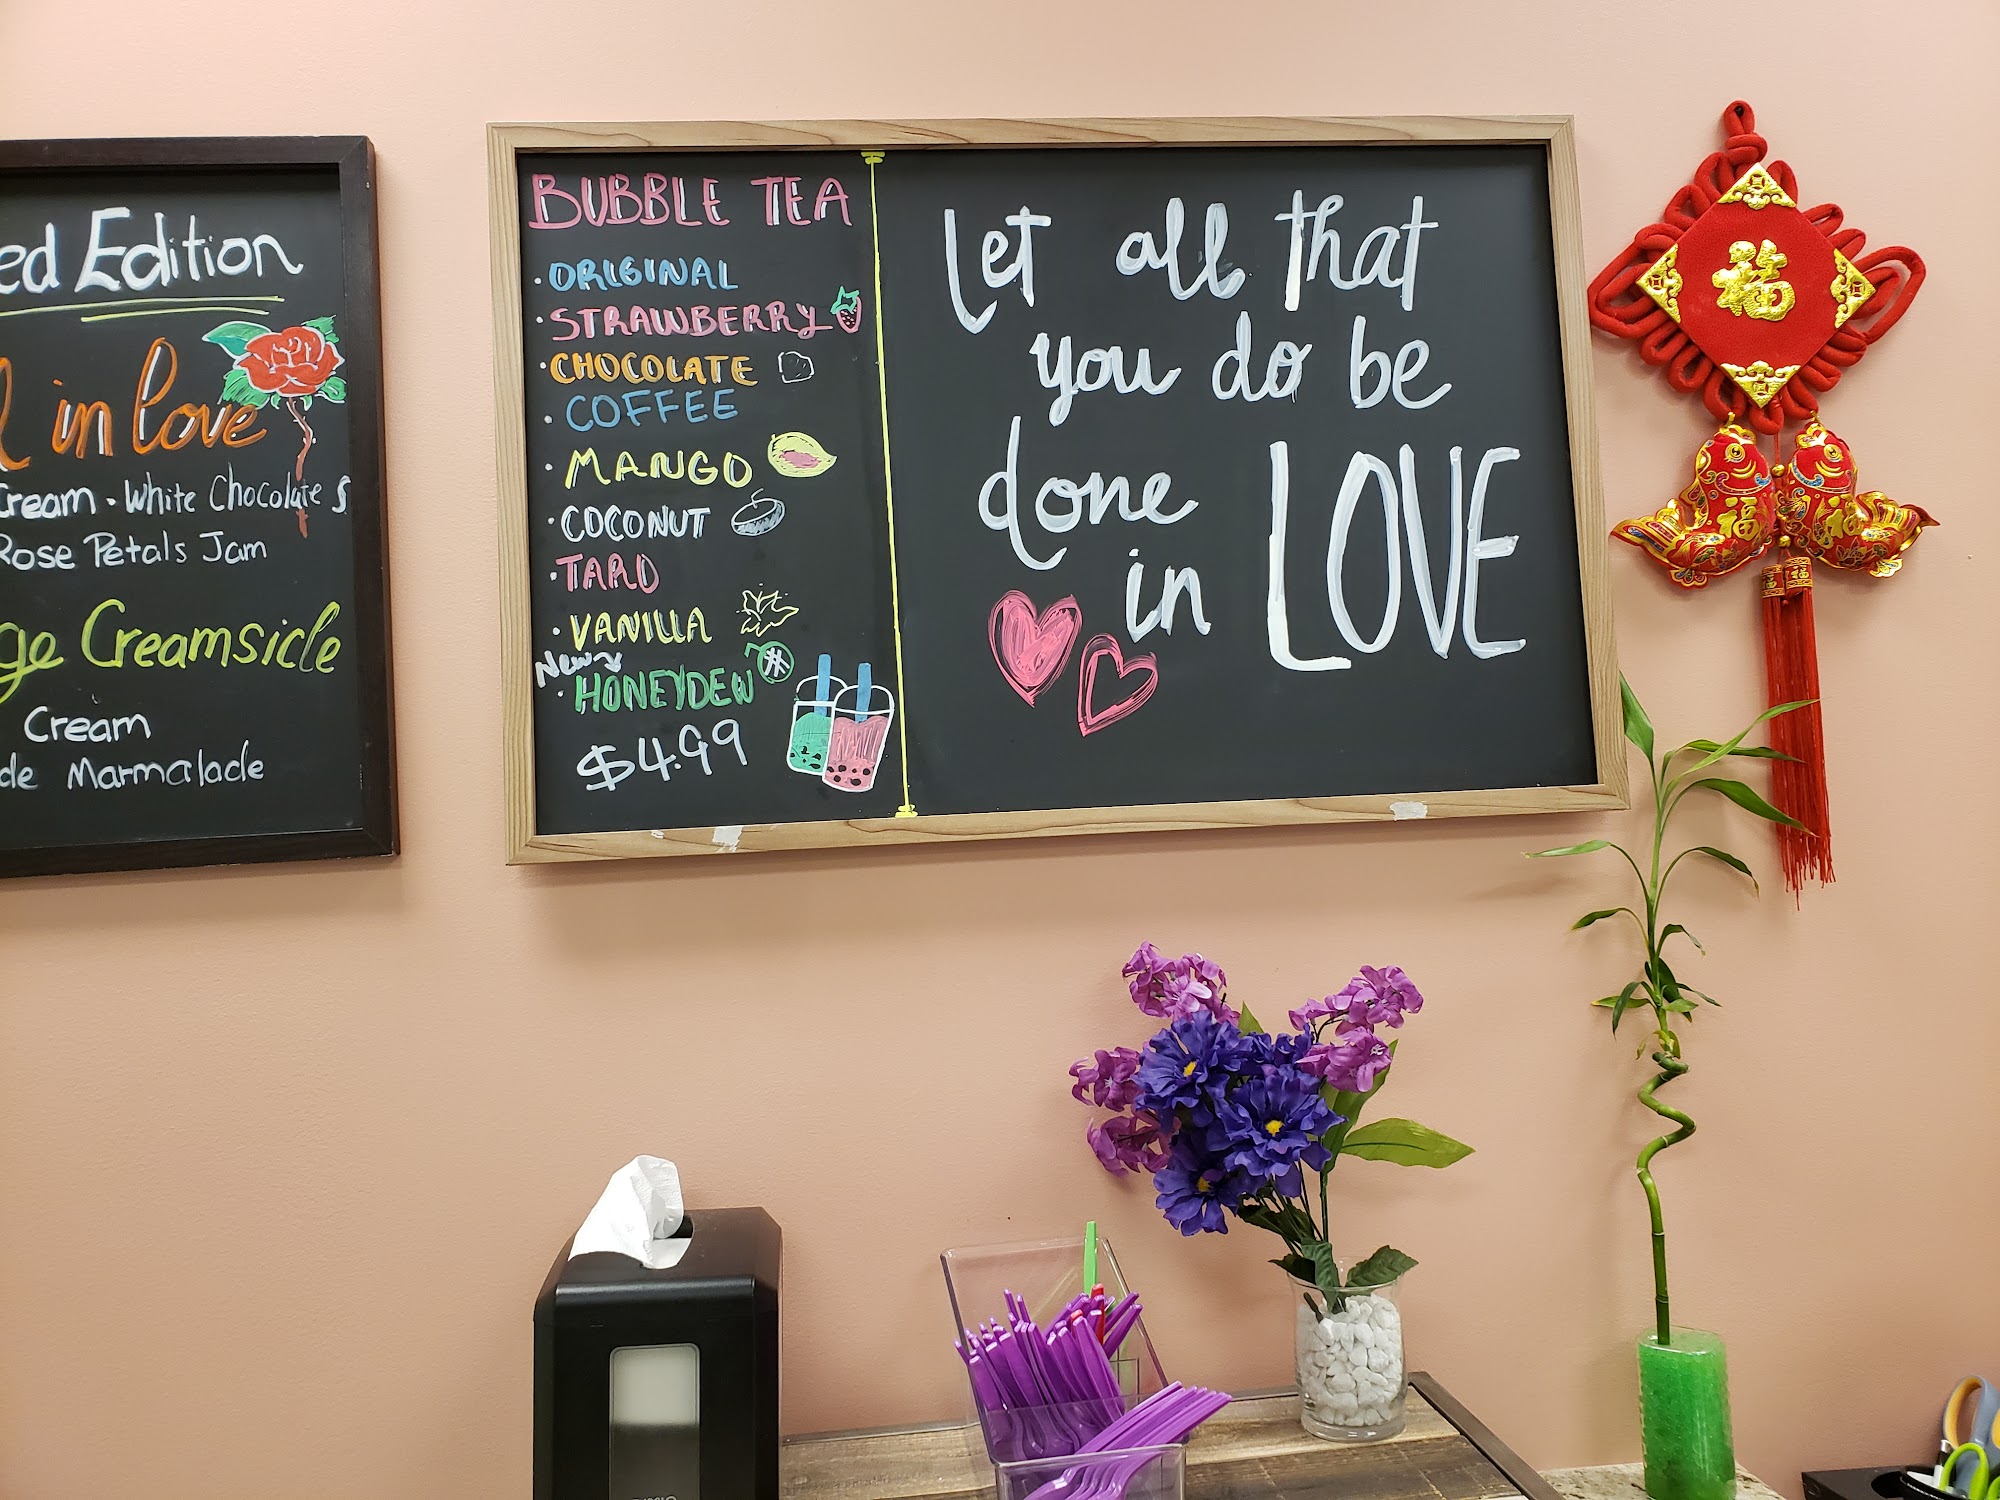 Edition
in love
Cream · White Chocolate
Rose Petals Jam
Creamsicle
Cream
Marmalade
BUBBLE TEA
· ORIGINAL
· STRAWBERRY
· CHOCOLATE
· COFFEE
· MANGO
· COCONUT
· TARO
· VANILLA
New
· HONEYDEW
$4.99
Let all that
you do be
done
in LOVE
福